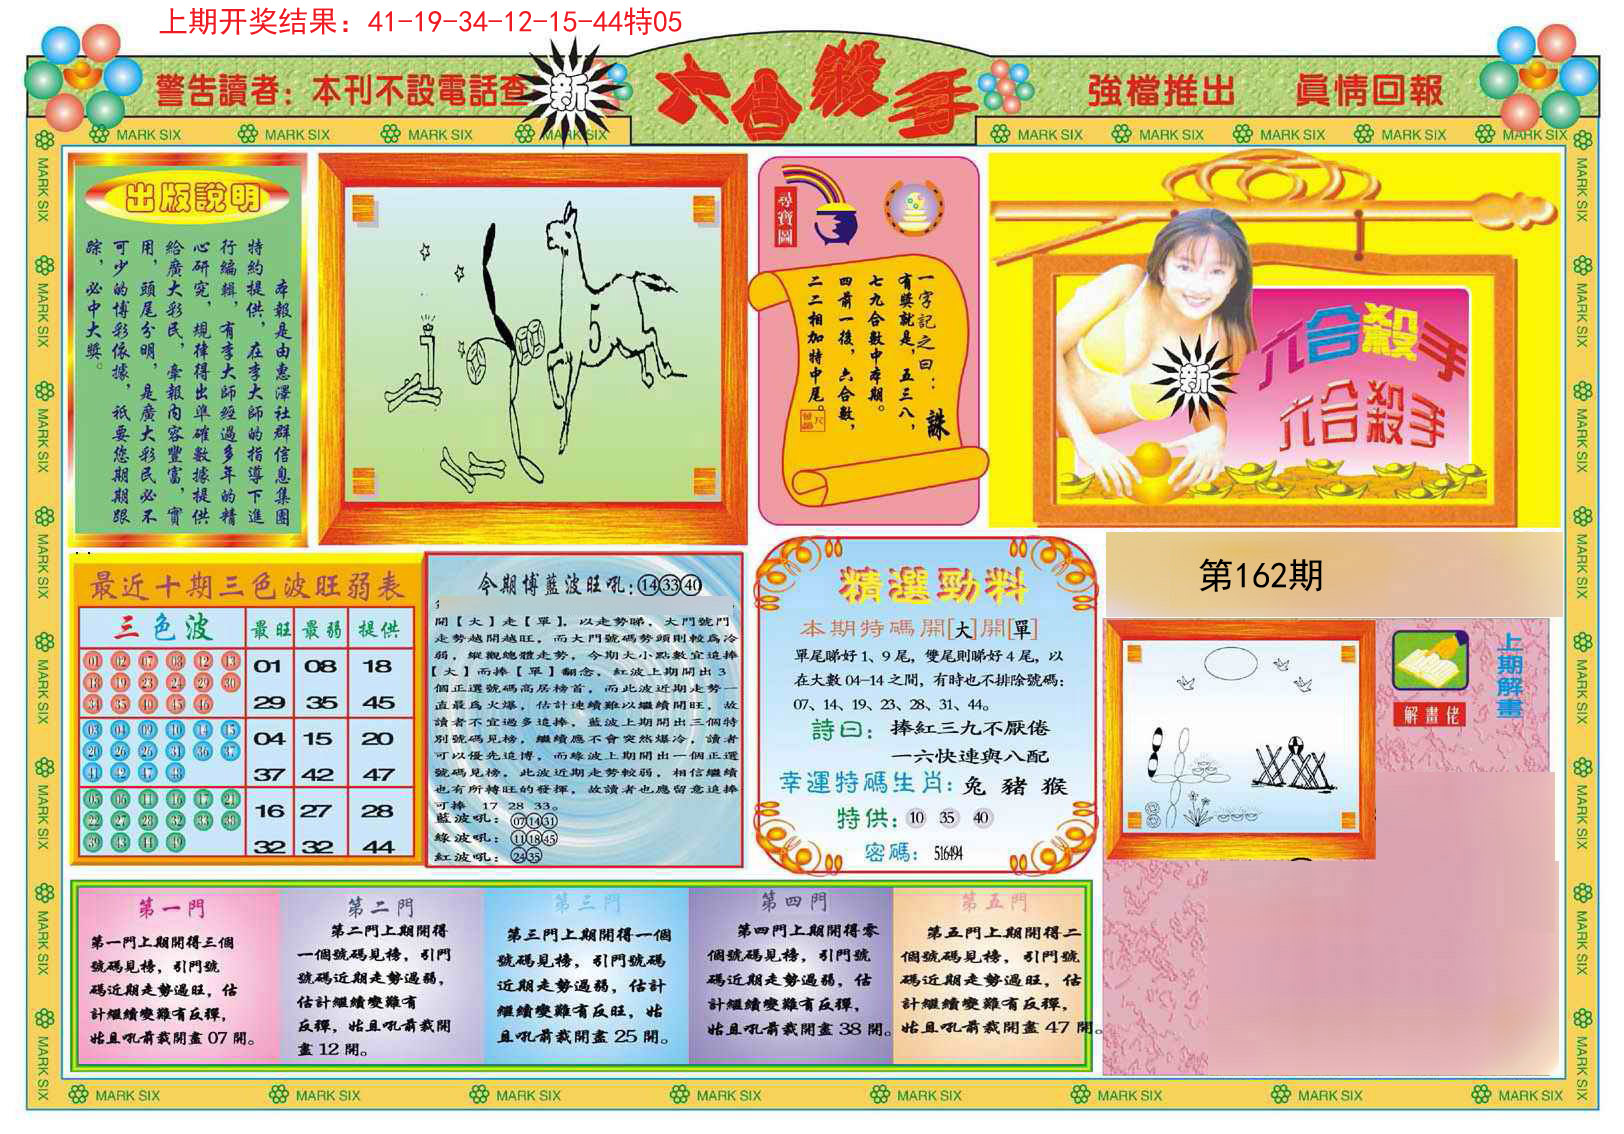 上期开奖结果：41-19-34-12-15-44特05
警告讀者：本刊不設電話查
新
六合殺手
強檔推出 真情回報
MARK SIX MARK SIX MARK SIX MARK SIX MARK SIX MARK SIX MARK SIX MARK SIX MARK SIX
出版說明
本報是由惠澤社群信息集團
特約提供，在李大師的指導下進
行編輯，有李大師經過多年的精
心研究，規律得出準確數據提供
給廣大彩民，牽報內容豐富，實
用，頭尾分明，是廣大彩民必不
可少的博彩依據，祇要您期期跟
踪，必中大獎。
5
尋寶圖
一字記之曰：誅
有獎就是，五三八，
七九合數中本期。
四前一後，六合數，
二二相加特中尾。
六合殺手
六合殺手
新
最近十期三色波旺弱表
三色波 最旺 最弱 提供
01 02 07 08 12 13
18 19 23 24 29 30
34 35 40 45 46
01 08 18
29 35 45
03 04 09 10 14 15
20 25 26 31 36 37
41 42 47 48
04 15 20
37 42 47
05 06 11 16 17 21
22 27 28 32 33 38
39 43 44 49
16 27 28
32 32 44
今期博藍波旺吼：14 33 40
開【大】走【單】，以走勢睇，大門號門
走勢越開越旺，而大門號碼勢頭則較為冷
弱，縱觀總體走勢，今期大小點數宜追捧
【大】而捧【單】翻念，紅波上期開出 3
個正選號碼高居榜首，而此波近期走勢一
直最為火爆，估計連續難以繼續開旺，故
讀者不宜過多追捧，藍波上期開出三個特
別號碼見榜，繼續應不會突然爆冷，讀者
可以優先追博，而綠波上期開出一個正選
號碼見榜，此波近期走勢較弱，相信繼續
也有所轉旺的發揮，故讀者也應留意追捧
可捧 17 28 33。
藍波吼：07 14 31
綠波吼：11 18 45
紅波吼：24 35
精選勁料
本期特碼開[大]開[單]
單尾睇好1、9尾，雙尾則睇好4尾，以
在大數04-14之間，有時也不排除號碼：
07、14、19、23、28、31、44。
詩曰：捧紅三九不厭倦
一六快連與八配
幸運特碼生肖：兔 豬 猴
特供：10 35 40
密碼：516494
第162期
上期解畫
解畫佬
第一門
第一門上期開得三個
號碼見榜，引門號
碼近期走勢過旺，估
計繼續變難有反彈，
姑且吼前裁開盡 07 開。
第二門
第二門上期開得
一個號碼見榜，引門
號碼近期走勢過弱，
估計繼續變難有
反彈，姑且吼前裁開
盡 12 開。
第三門
第三門上期開得一個
號碼見榜，引門號碼
近期走勢過弱，估計
繼續變難有反旺，姑
且吼前裁開盡 25 開。
第四門
第四門上期開得零
個號碼見榜，引門號
碼近期走勢過弱，估
計繼續變難有反彈，
姑且吼前裁開盡 38 開。
第五門
第五門上期開得二
個號碼見榜，引門號
碼近期走勢過旺，估
計繼續變難有反彈，
姑且吼前裁開盡 47 開。
MARK SIX MARK SIX MARK SIX MARK SIX MARK SIX MARK SIX MARK SIX MARK SIX